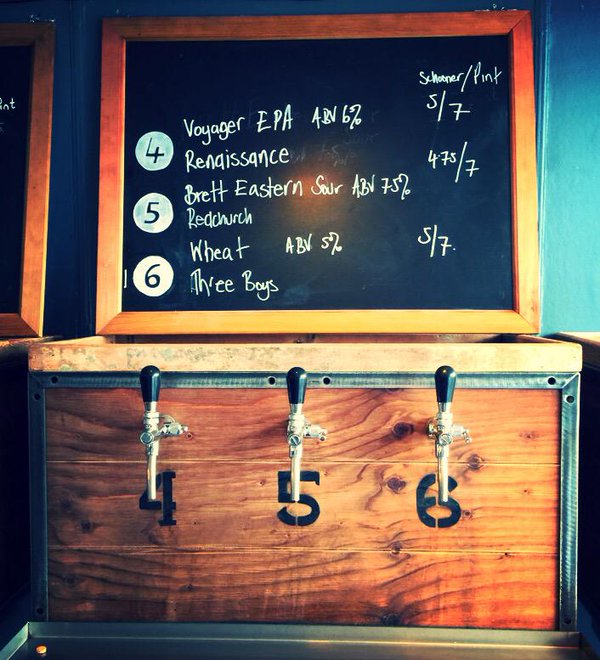 nt
Schooner/Pint
Voyager EPA ABV 6% 5/7
4 Renaissance 475/7
Brett Eastern Sour ABV 75%
5 Redchurch
Wheat ABV 5% 5/7.
6 Three Boys
4 5 6